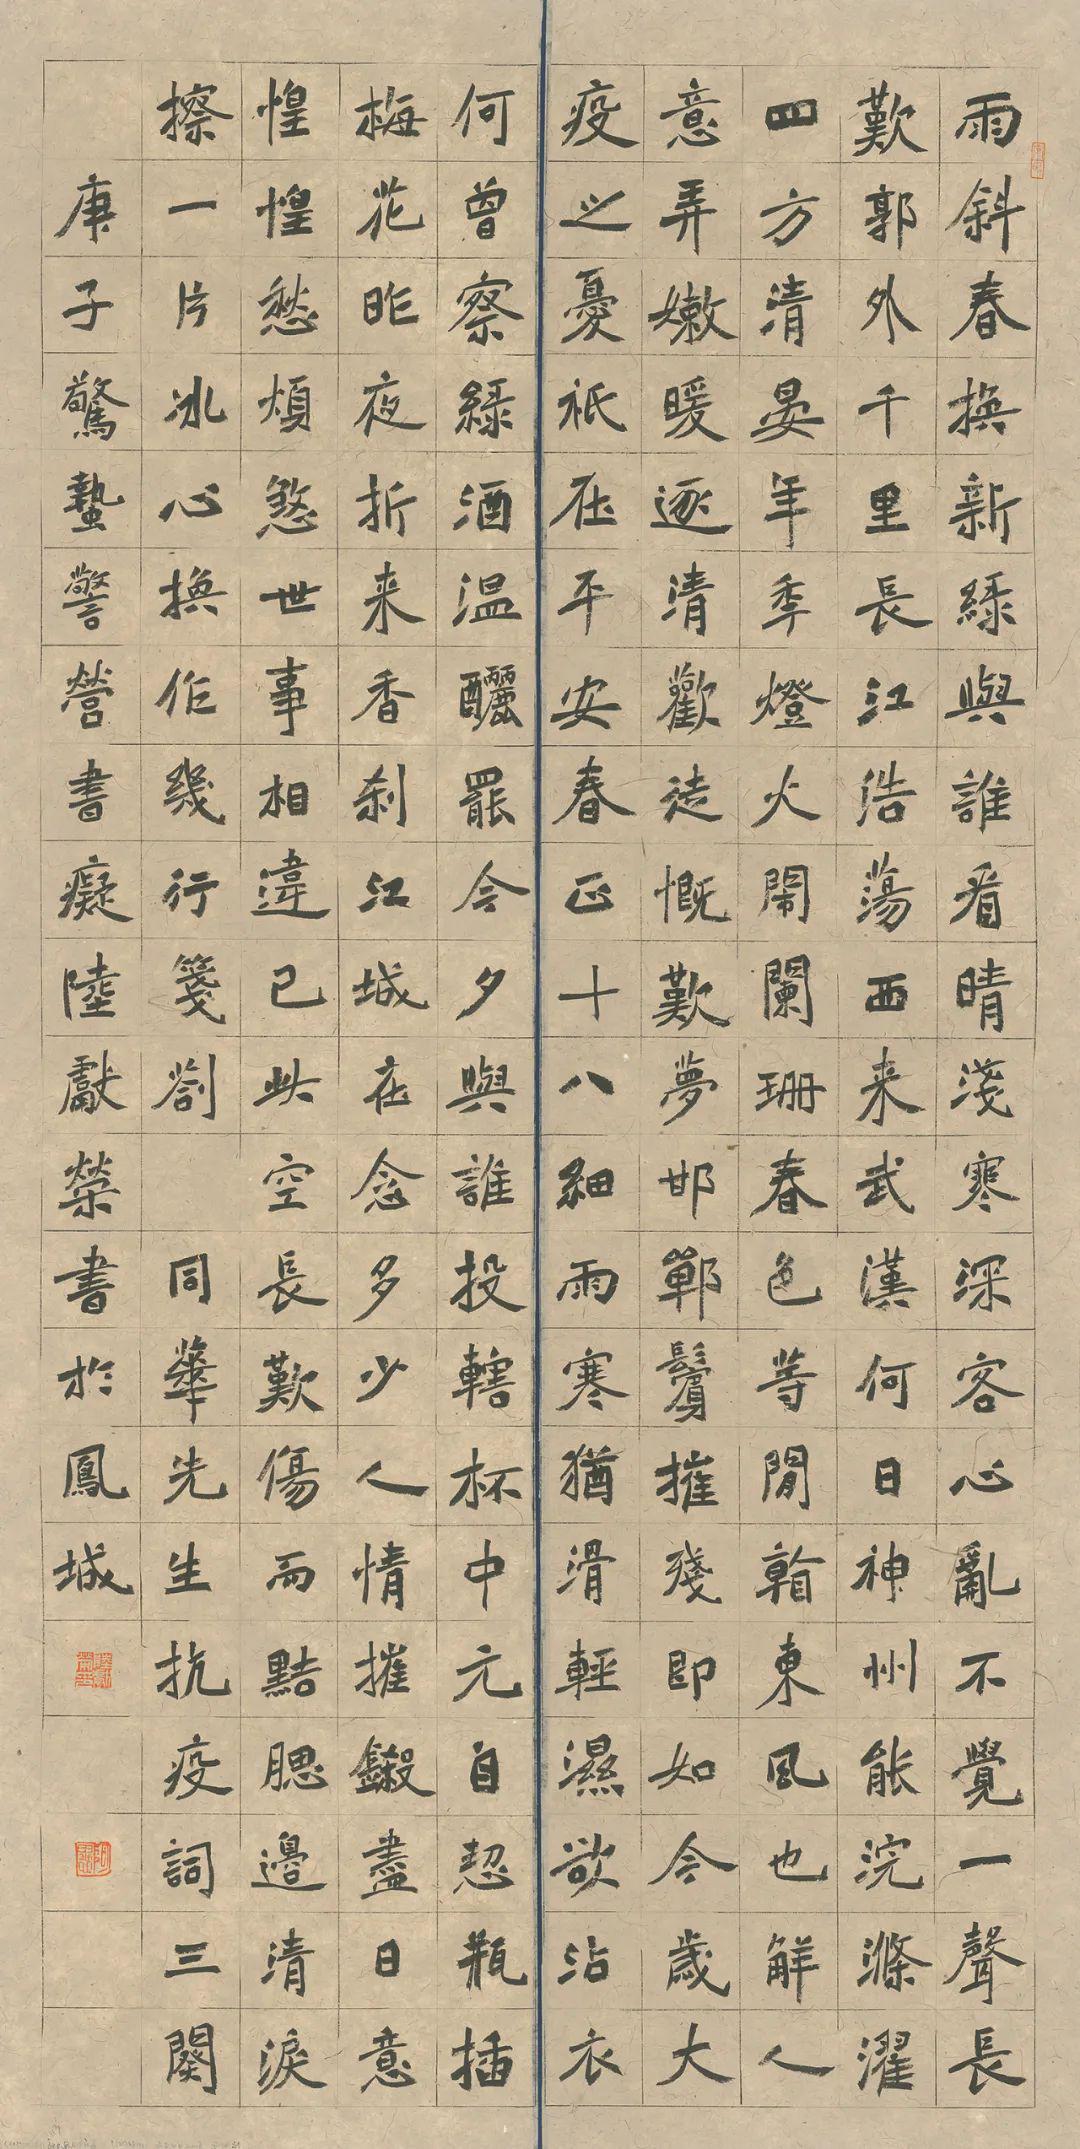 雨斜春換新綠與誰看晴淺寒深客心亂不覺一聲長
歎郭外千里長江浩蕩西来武漢何日神州能浣滌濯
四方清晏年季燈火鬧闌珊春色等閒斡東風也解人
意弄嫩暖逐清歡徒慨歎夢邯鄲鬢摧殘即如今歲大
疫之憂祇在平安春正十八細雨寒猶滑輕濕欲沾衣
何曾察綠酒温釃罷今夕與誰投轄杯中元自恝瓶插
梅花昨夜折来香刹江城在念多少人情摧鎩盡日意
惶惶愁煩煞世事相違已此空長歎傷而黠腮邊清淚
擦一片冰心換作幾行箋劄 同華先生抗疫詞三闋
庚子驚蟄警營書癡陸獻榮書於鳳城